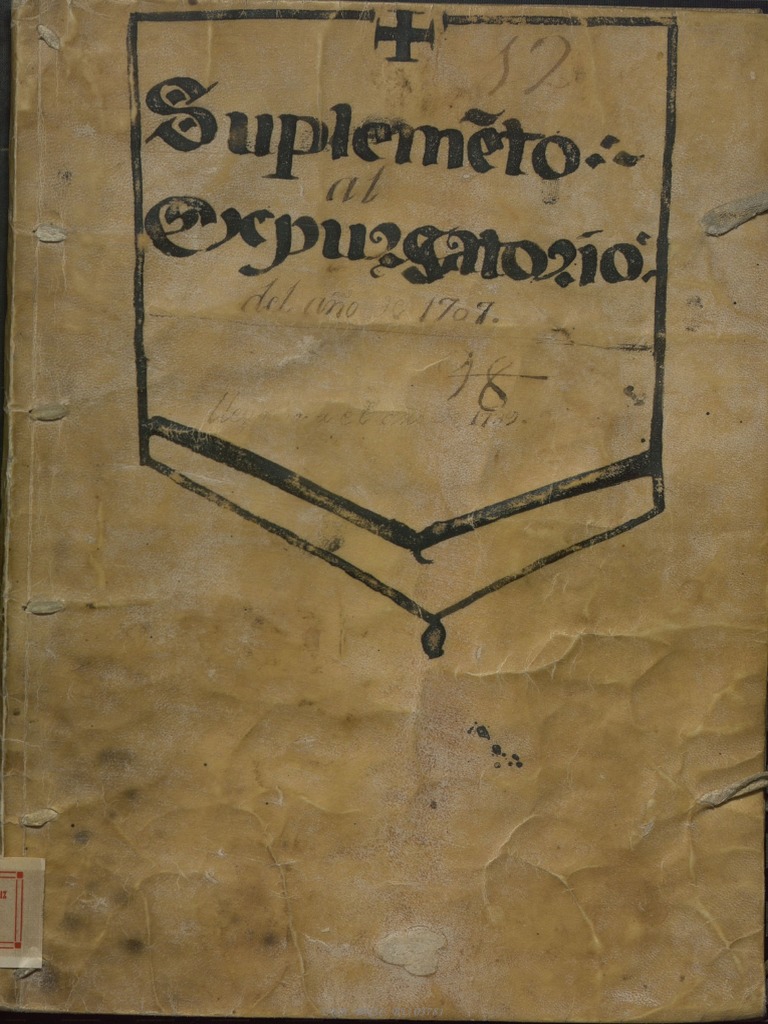 52
Suplemẽto
al
Expurgatorio
del año de 1707.
48
el